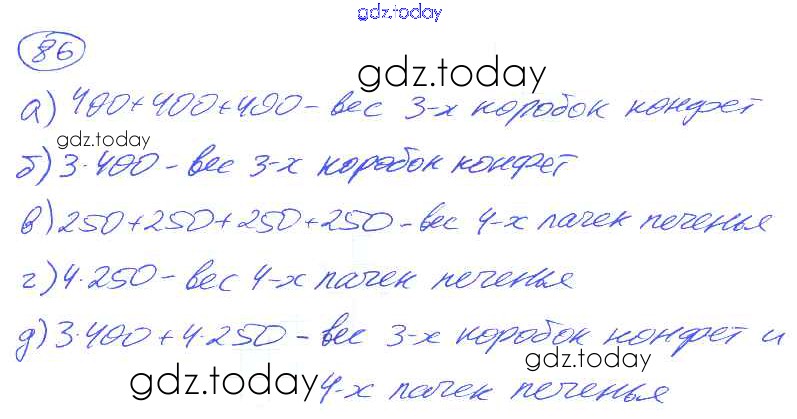 gdz.today
86
gdz.today
а) 400+400+400 - вес 3-х коробок конфет
gdz.today
б) 3·400 - вес 3-х коробок конфет
в) 250+250+250+250 - вес 4-х пачек печенья
г) 4·250 - вес 4-х пачек печенья
д) 3·400+4·250 - вес 3-х коробок конфет и
gdz.today
gdz.today
4-х пачек печенья